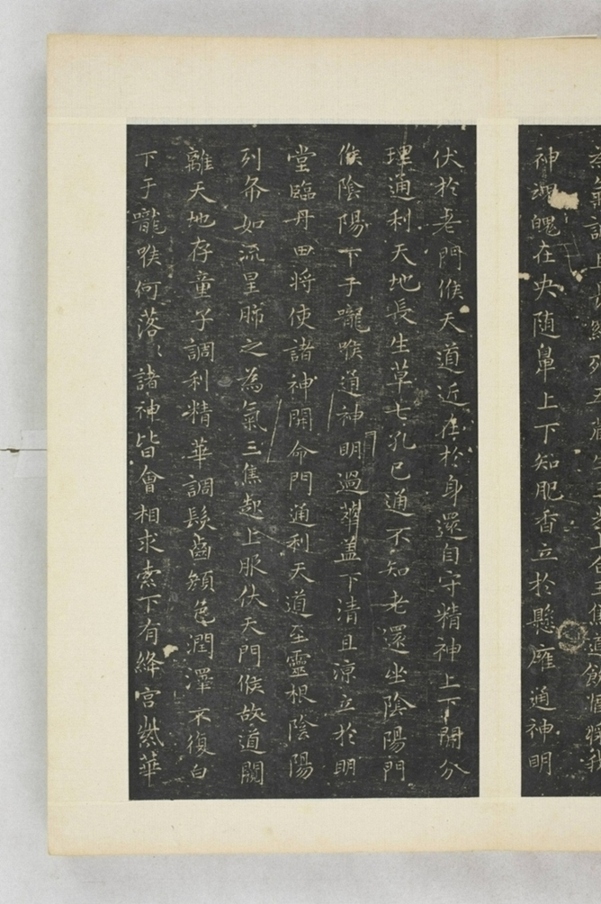 神魂魄在央随鼻上下知肥香立於懸膺通神明
伏於老門候天道近在於身還自守精神上下關分
理通利天地長生草七孔已通不知老還坐陰陽門
候陰陽下于嚨喉通神明過華蓋下清且涼立於明
堂臨丹田將使諸神開命門通利天道至靈根陰陽
列布如流星肺之為氣三焦起上服伏天門候故道闚
離天地存童子調利精華調髮齒顏色潤澤不復白
下于嚨喉何落〻諸神皆會相求索下有絳宮紫華